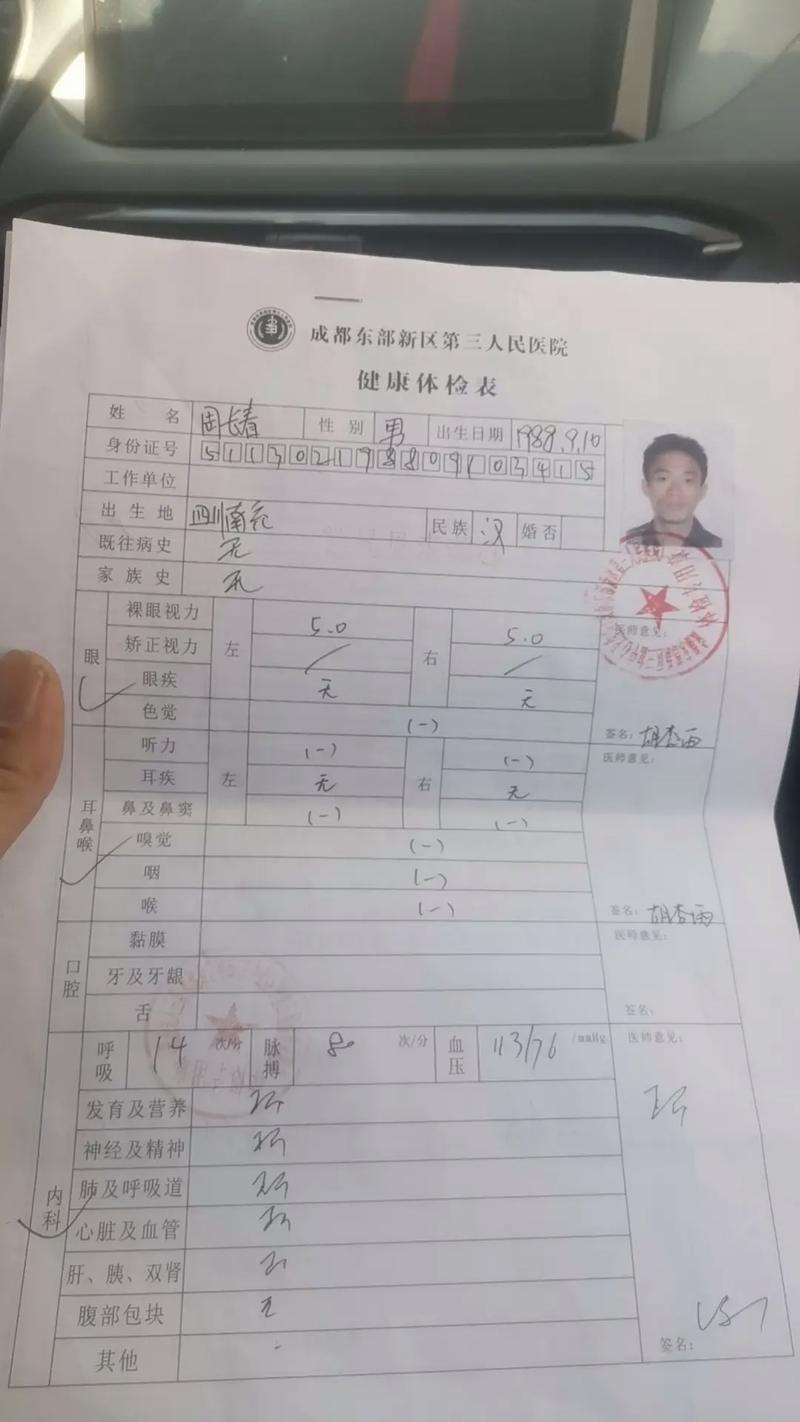 成都东部新区第三人民医院
健康体检表
姓 名 周长春 性 别 男 出生日期 1988.9.10
身份证号 511302198809103415
工作单位
出 生 地 四川南充 民族 汉 婚否
既往病史 无
家 族 史 无
眼
裸眼视力 左 5.0 右 5.0 医师意见:
矫正视力 / /
眼疾 无 无
色觉 (-) 签名:胡杏雨
耳鼻喉
听力 左 (-) 右 (-) 医师意见:
耳疾 无 无
鼻及鼻窦 (-) (-)
嗅觉 (-)
咽 (-)
喉 (-) 签名:胡杏雨
口腔
黏膜 医师意见:
牙及牙龈
舌 签名:
内科
呼吸 14 次/分 脉搏 80 次/分 血压 113/76 /mmHg 医师意见:
发育及营养
神经及精神
肺及呼吸道
心脏及血管
肝、胰、双肾
腹部包块 无
其他 -
签名: